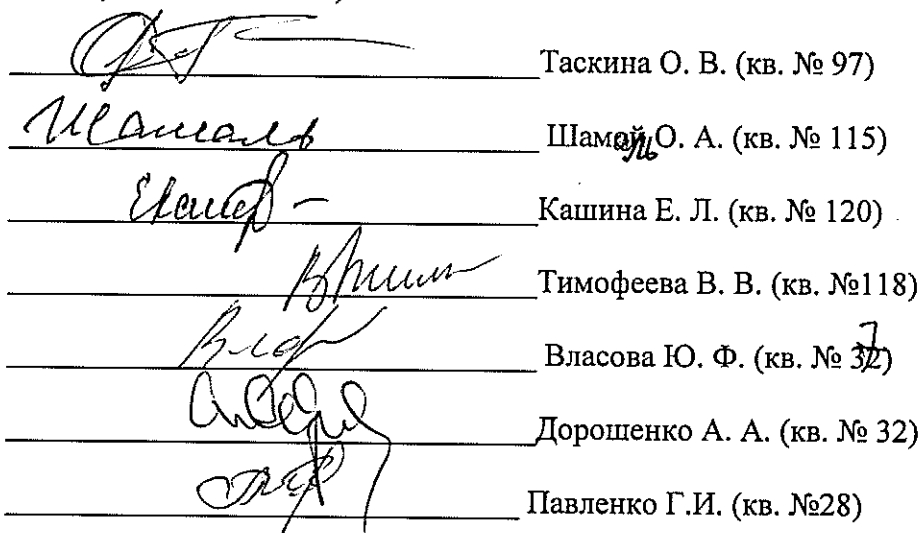 Таскина О. В. (кв. № 97)
Шамаль Шамаль О. А. (кв. № 115)
Кашина Е. Л. (кв. № 120)
Тимофеева В. В. (кв. №118)
Власова Ю. Ф. (кв. № 37)
Дорошенко А. А. (кв. № 32)
Павленко Г.И. (кв. №28)